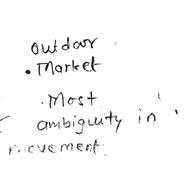 outdoor
• Market
• Most
ambiguity in
movement.